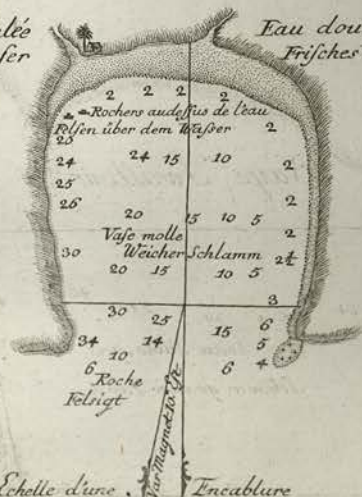 lée Eau dou
ser Frisches
2 2 2 2
Rochers audessus de l'eau
Felsen über dem Wasser 2
25
24 24 15 10 2
25
26 2
20 15 10 5 2
Vase molle
30 Weicher Schlamm 2½
20 15 10 5
3
30 25 15 6
34 14 5
10 6 4
6 Roche
Felsigt
Var. Magnet. 10° Est
Echelle d'une Encablure